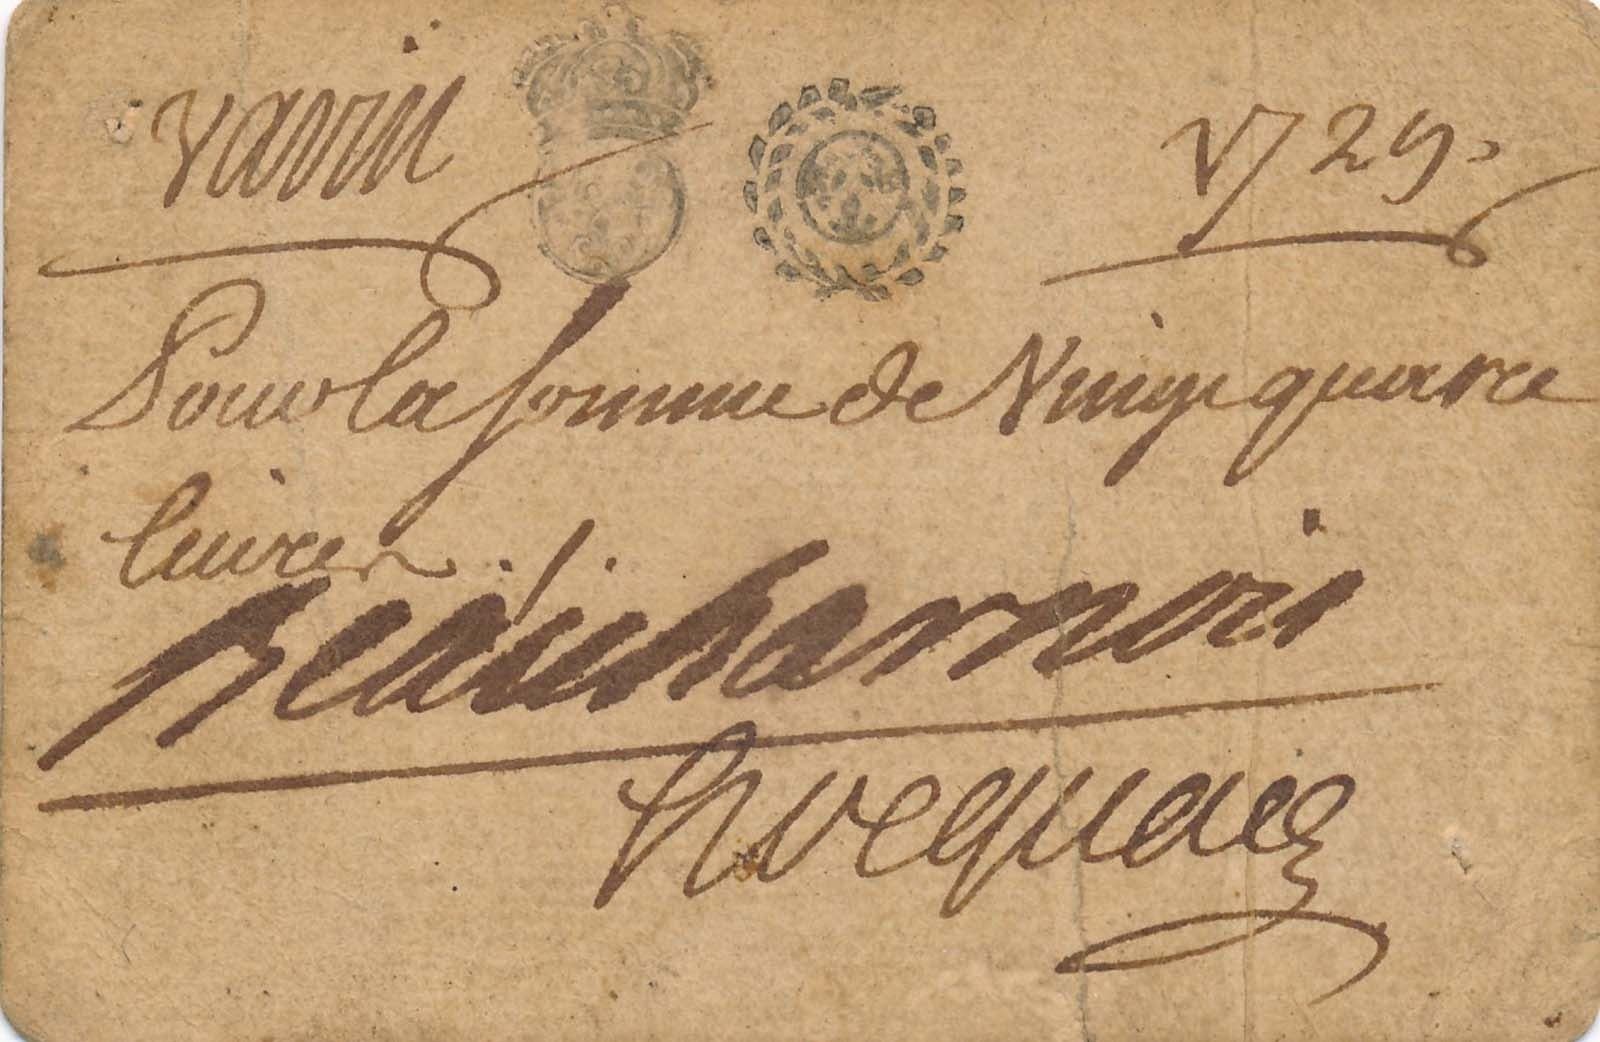 Varin 1729.
Pour la somme de Vingt quatre
livres
Beauharnois
hocquart